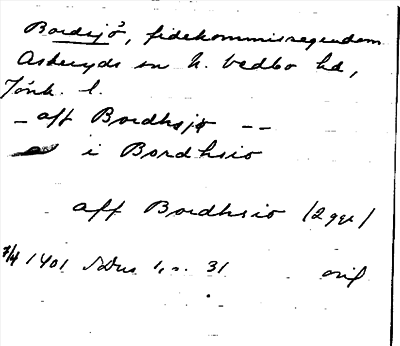 Bordsjö, fidekommissegendom
Asberyds sn N. Vedbo hd,
Jönk. l.
- aff Bordhsiø --
i Bordhsio
aff Bordhsio (2 ggr)
7/4 1401 SDns 1, s. 31 orig